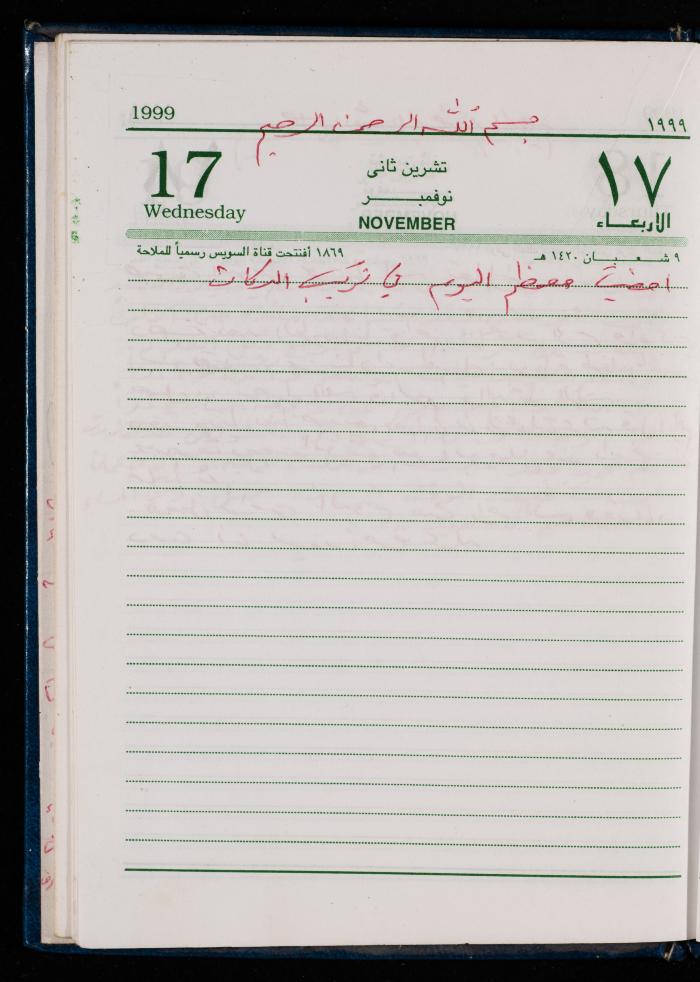 1999
١٩٩٩
بسم الله الرحمن الرحيم
17
Wednesday
تشرين ثانى
نوفمبر
NOVEMBER
١٧
الاربعاء
٩ شعبان ١٤٢٠ هـ
١٨٦٩ أفتتحت قناة السويس رسمياً للملاحة
امضيت معظم اليوم في تركيب الدركات